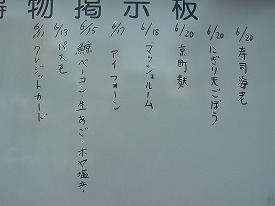 得物掲示板
6/20 寿司海老
6/20 にぎり天ごぼう
6/20 京町麩
6/18 マッシュルーム
6/17 アイフォーン
6/15 鯨ベーコン生あご・ホヤ塩辛
6/13 パスモ
6/11 クレジットカード